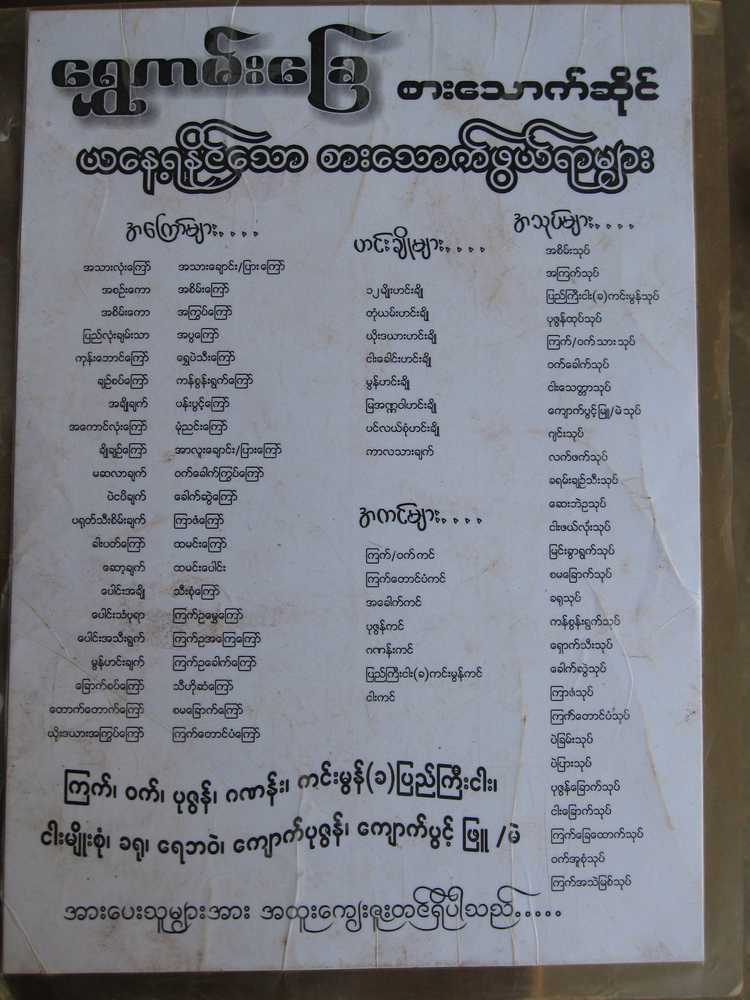 ရွှေကမ်းခြေ စားသောက်ဆိုင်
ယနေ့ရနိုင်သော စားသောက်ဖွယ်ရာများ
အကြော်များ....
အသားလုံးကြော်
အစဉ်းကော
အစိမ်းကော
ပြည်လုံးချမ်းသာ
ကုန်းဘောင်ကြော်
ချဉ်စပ်ကြော်
အချိုချက်
အကောင်လုံးကြော်
ချိုချဉ်ကြော်
မဆလာချက်
ပဲငပိချက်
ပရုတ်သီးစိမ်းချက်
ခါးပတ်ကြော်
ဆော့ချက်
ပေါင်းအချို
ပေါင်းသံပုရာ
ပေါင်းအသီးရွက်
မွန်ဟင်းချက်
ခြောက်စပ်ကြော်
တောက်တောက်ကြော်
ယိုးဒယားအကြွပ်ကြော်
အသားချောင်း/ပြားကြော်
အစိမ်းကြော်
အကြွပ်ကြော်
အပွကြော်
ရွှေပဲသီးကြော်
ကန်စွန်းရွက်ကြော်
ပန်းပွင့်ကြော်
မုံညင်းကြော်
အာလူးချောင်း/ပြားကြော်
ဝက်ခေါက်ကြွပ်ကြော်
ခေါက်ဆွဲကြော်
ကြာဇံကြော်
ထမင်းကြော်
ထမင်းပေါင်း
သီးစုံကြော်
ကြက်ဥမွှေကြော်
ကြက်ဥအကြေကြော်
ကြက်ဥခေါက်ကြော်
သီဟိုဆံကြော်
စမခြောက်ကြော်
ကြက်တောင်ပံကြော်
ဟင်းချိုများ....
၁၂မျိုးဟင်းချို
တုံယမ်းဟင်းချို
ယိုးဒယားဟင်းချို
ငါးခေါင်းဟင်းချို
မွန်ဟင်းချို
မြအဏ္ဏဝါဟင်းချို
ပင်လယ်စုံဟင်းချို
ကာလသားချက်
အကင်များ....
ကြက်/ဝက်ကင်
ကြက်တောင်ပံကင်
အခေါက်ကင်
ပုဇွန်ကင်
ဂဏန်းကင်
ပြည်ကြီးငါး(ခ)ကင်းမွန်ကင်
ငါးကင်
အသုပ်များ....
အစိမ်းသုပ်
အကြက်သုပ်
ပြည်ကြီးငါး(ခ)ကင်းမွန်သုပ်
ပုဇွန်ထုပ်သုပ်
ကြက်/ဝက်သားသုပ်
ဝက်ခေါက်သုပ်
ငါးသေတ္တာသုပ်
ကျောက်ပွင့်ဖြူ/မဲသုပ်
ဂျင်းသုပ်
လက်ဖက်သုပ်
ခရမ်းချဉ်သီးသုပ်
ဆေးဘဲဥသုပ်
ငါးဖယ်လုံးသုပ်
မြင်းခွာရွက်သုပ်
စမခြောက်သုပ်
ခရုသုပ်
ကန်စွန်းရွက်သုပ်
ရှောက်သီးသုပ်
ခေါက်ဆွဲသုပ်
ကြာဇံသုပ်
ကြက်တောင်ပံသုပ်
ပဲခြမ်းသုပ်
ပဲပြားသုပ်
ပုဇွန်ခြောက်သုပ်
ငါးခြောက်သုပ်
ကြက်ခြေထောက်သုပ်
ဝက်အူစုံသုပ်
ကြက်အသဲမြစ်သုပ်
ကြက်၊ ဝက်၊ ပုဇွန်၊ ဂဏန်း၊ ကင်းမွန်(ခ)ပြည်ကြီးငါး၊
ငါးမျိုးစုံ၊ ခရု၊ ရေဘဝဲ၊ ကျောက်ပုဇွန်၊ ကျောက်ပွင့် ဖြူ/မဲ
အားပေးသူများအား အထူးကျေးဇူးတင်ရှိပါသည်.....